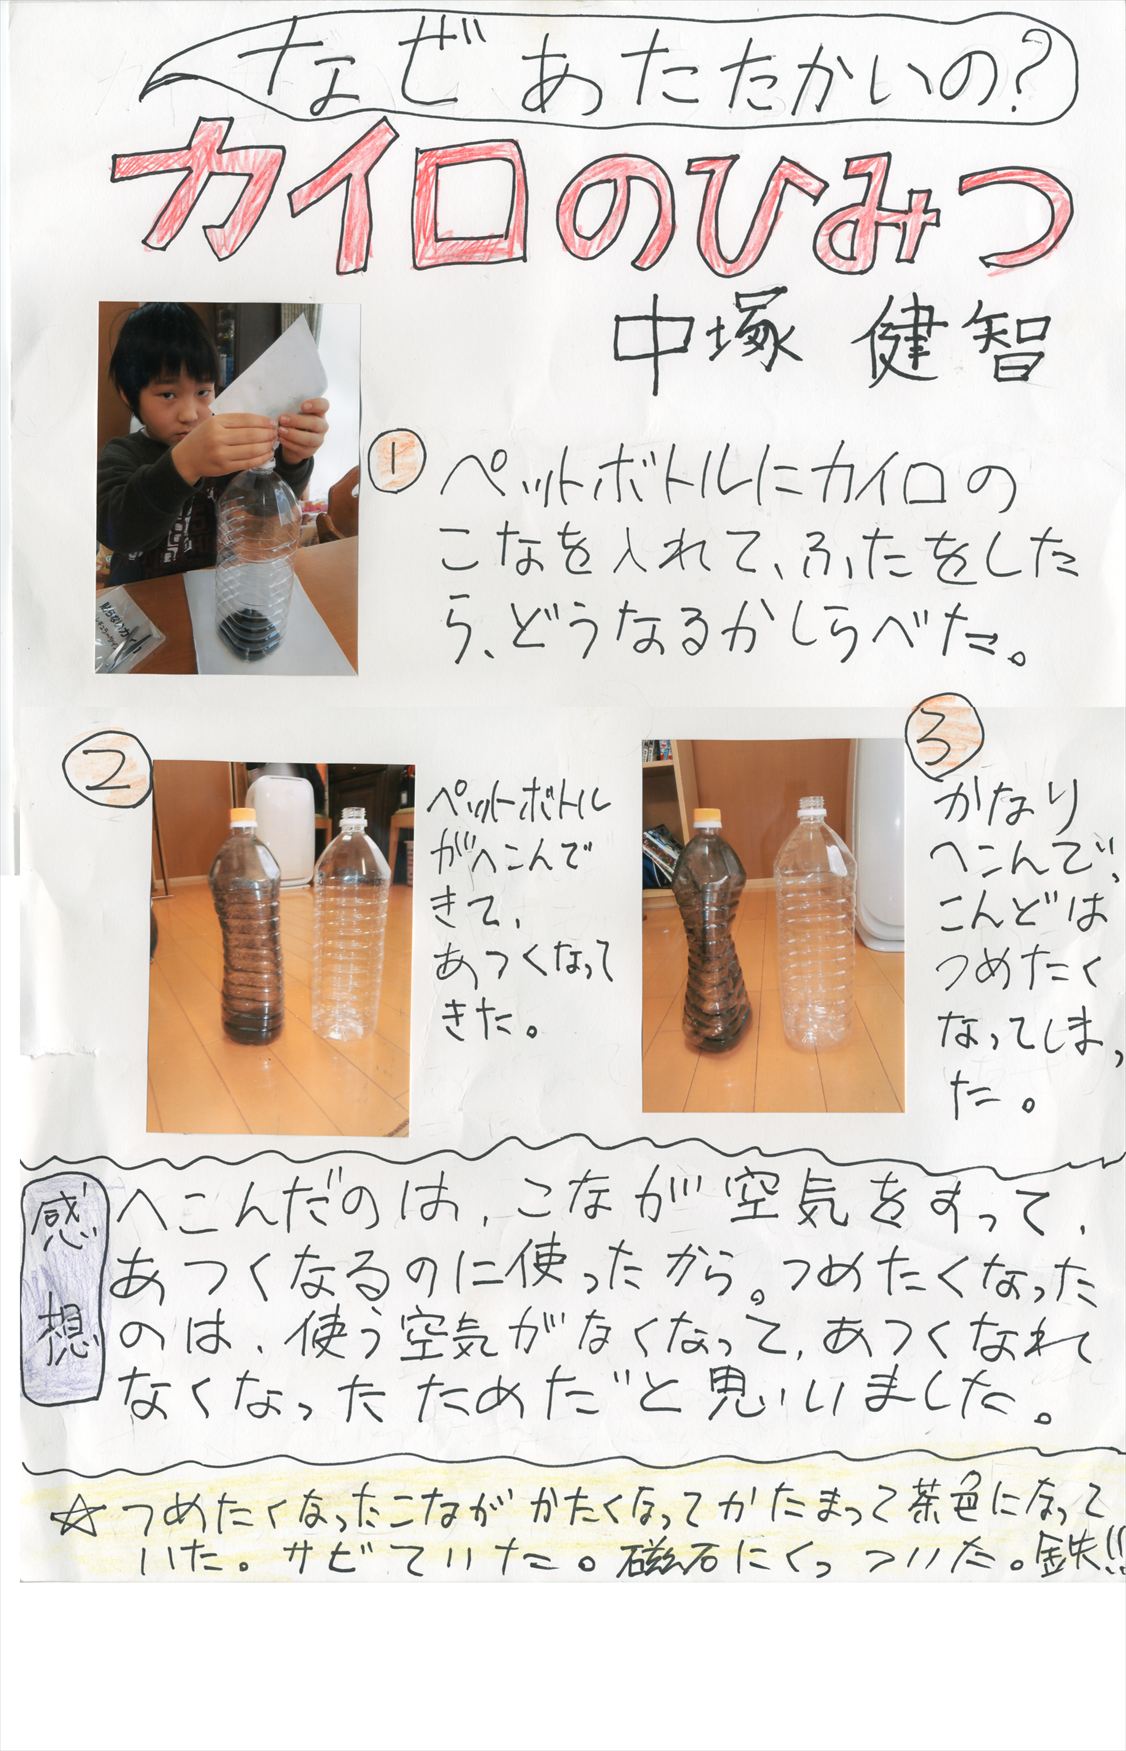 なぜあたたかいの?
カイロのひみつ
中塚 健智
① ペットボトルにカイロの
こなを入れて、ふたをした
ら、どうなるかしらべた。
②
ペットボトル
がへこんで
きて、
あつくなって
きた。
③
かなり
へこんで、
こんどは
つめたく
なってしまっ
た。
感想
へこんだのは、こなが空気をすって、
あつくなるのに使ったから。つめたくなった
のは、使う空気がなくなって、あつくなれ
なくなったためだと思いました。
☆つめたくなったこながかたくなってかたまって茶色になって
いた。サビていた。磁石にくっついた。鉄!!